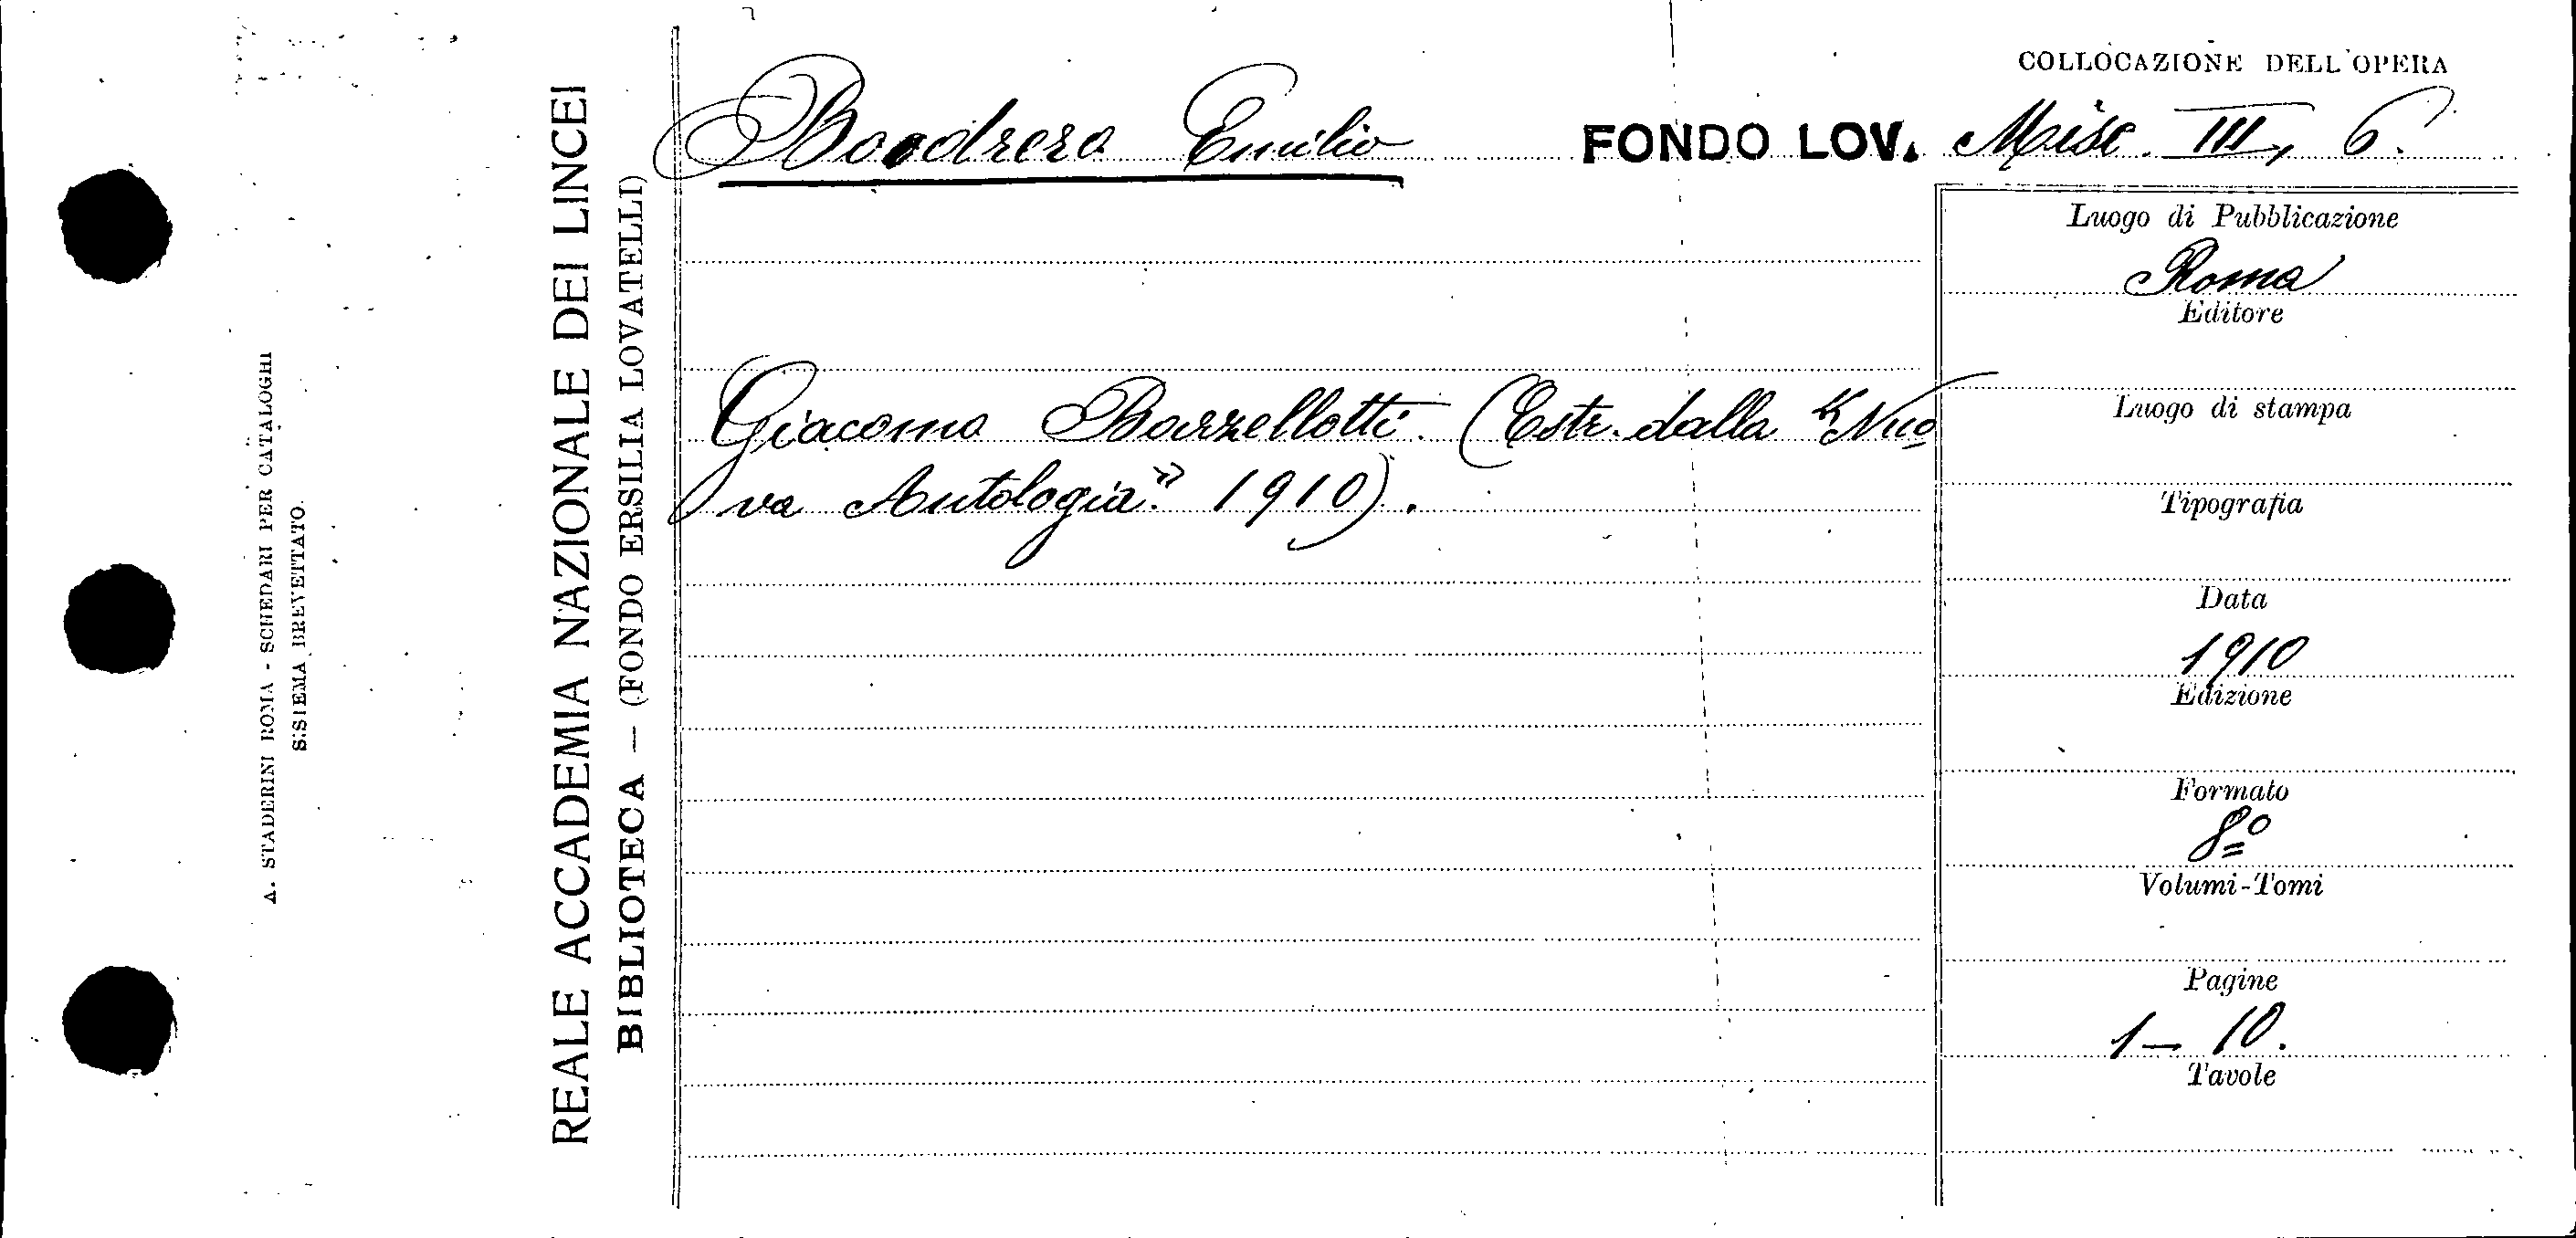 COLLOCAZIONE DELL'OPERA
Boodrero Emilio FONDO LOV. Misc. III, 6.
Giacomo Barzellotti. (Estr. dalla "Nuo
va Antologia" 1910).
Luogo di Pubblicazione
Roma
Editore
Luogo di stampa
Tipografia
Data
1910
Edizione
Formato
8º
Volumi-Tomi
Pagine
1 — 10.
Tavole
REALE ACCADEMIA NAZIONALE DEI LINCEI
BIBLIOTECA — (FONDO ERSILIA LOVATELLI)
A. STADERINI ROMA - SCHEDARI PER CATALOGHI
SISIEMA BREVETTATO.